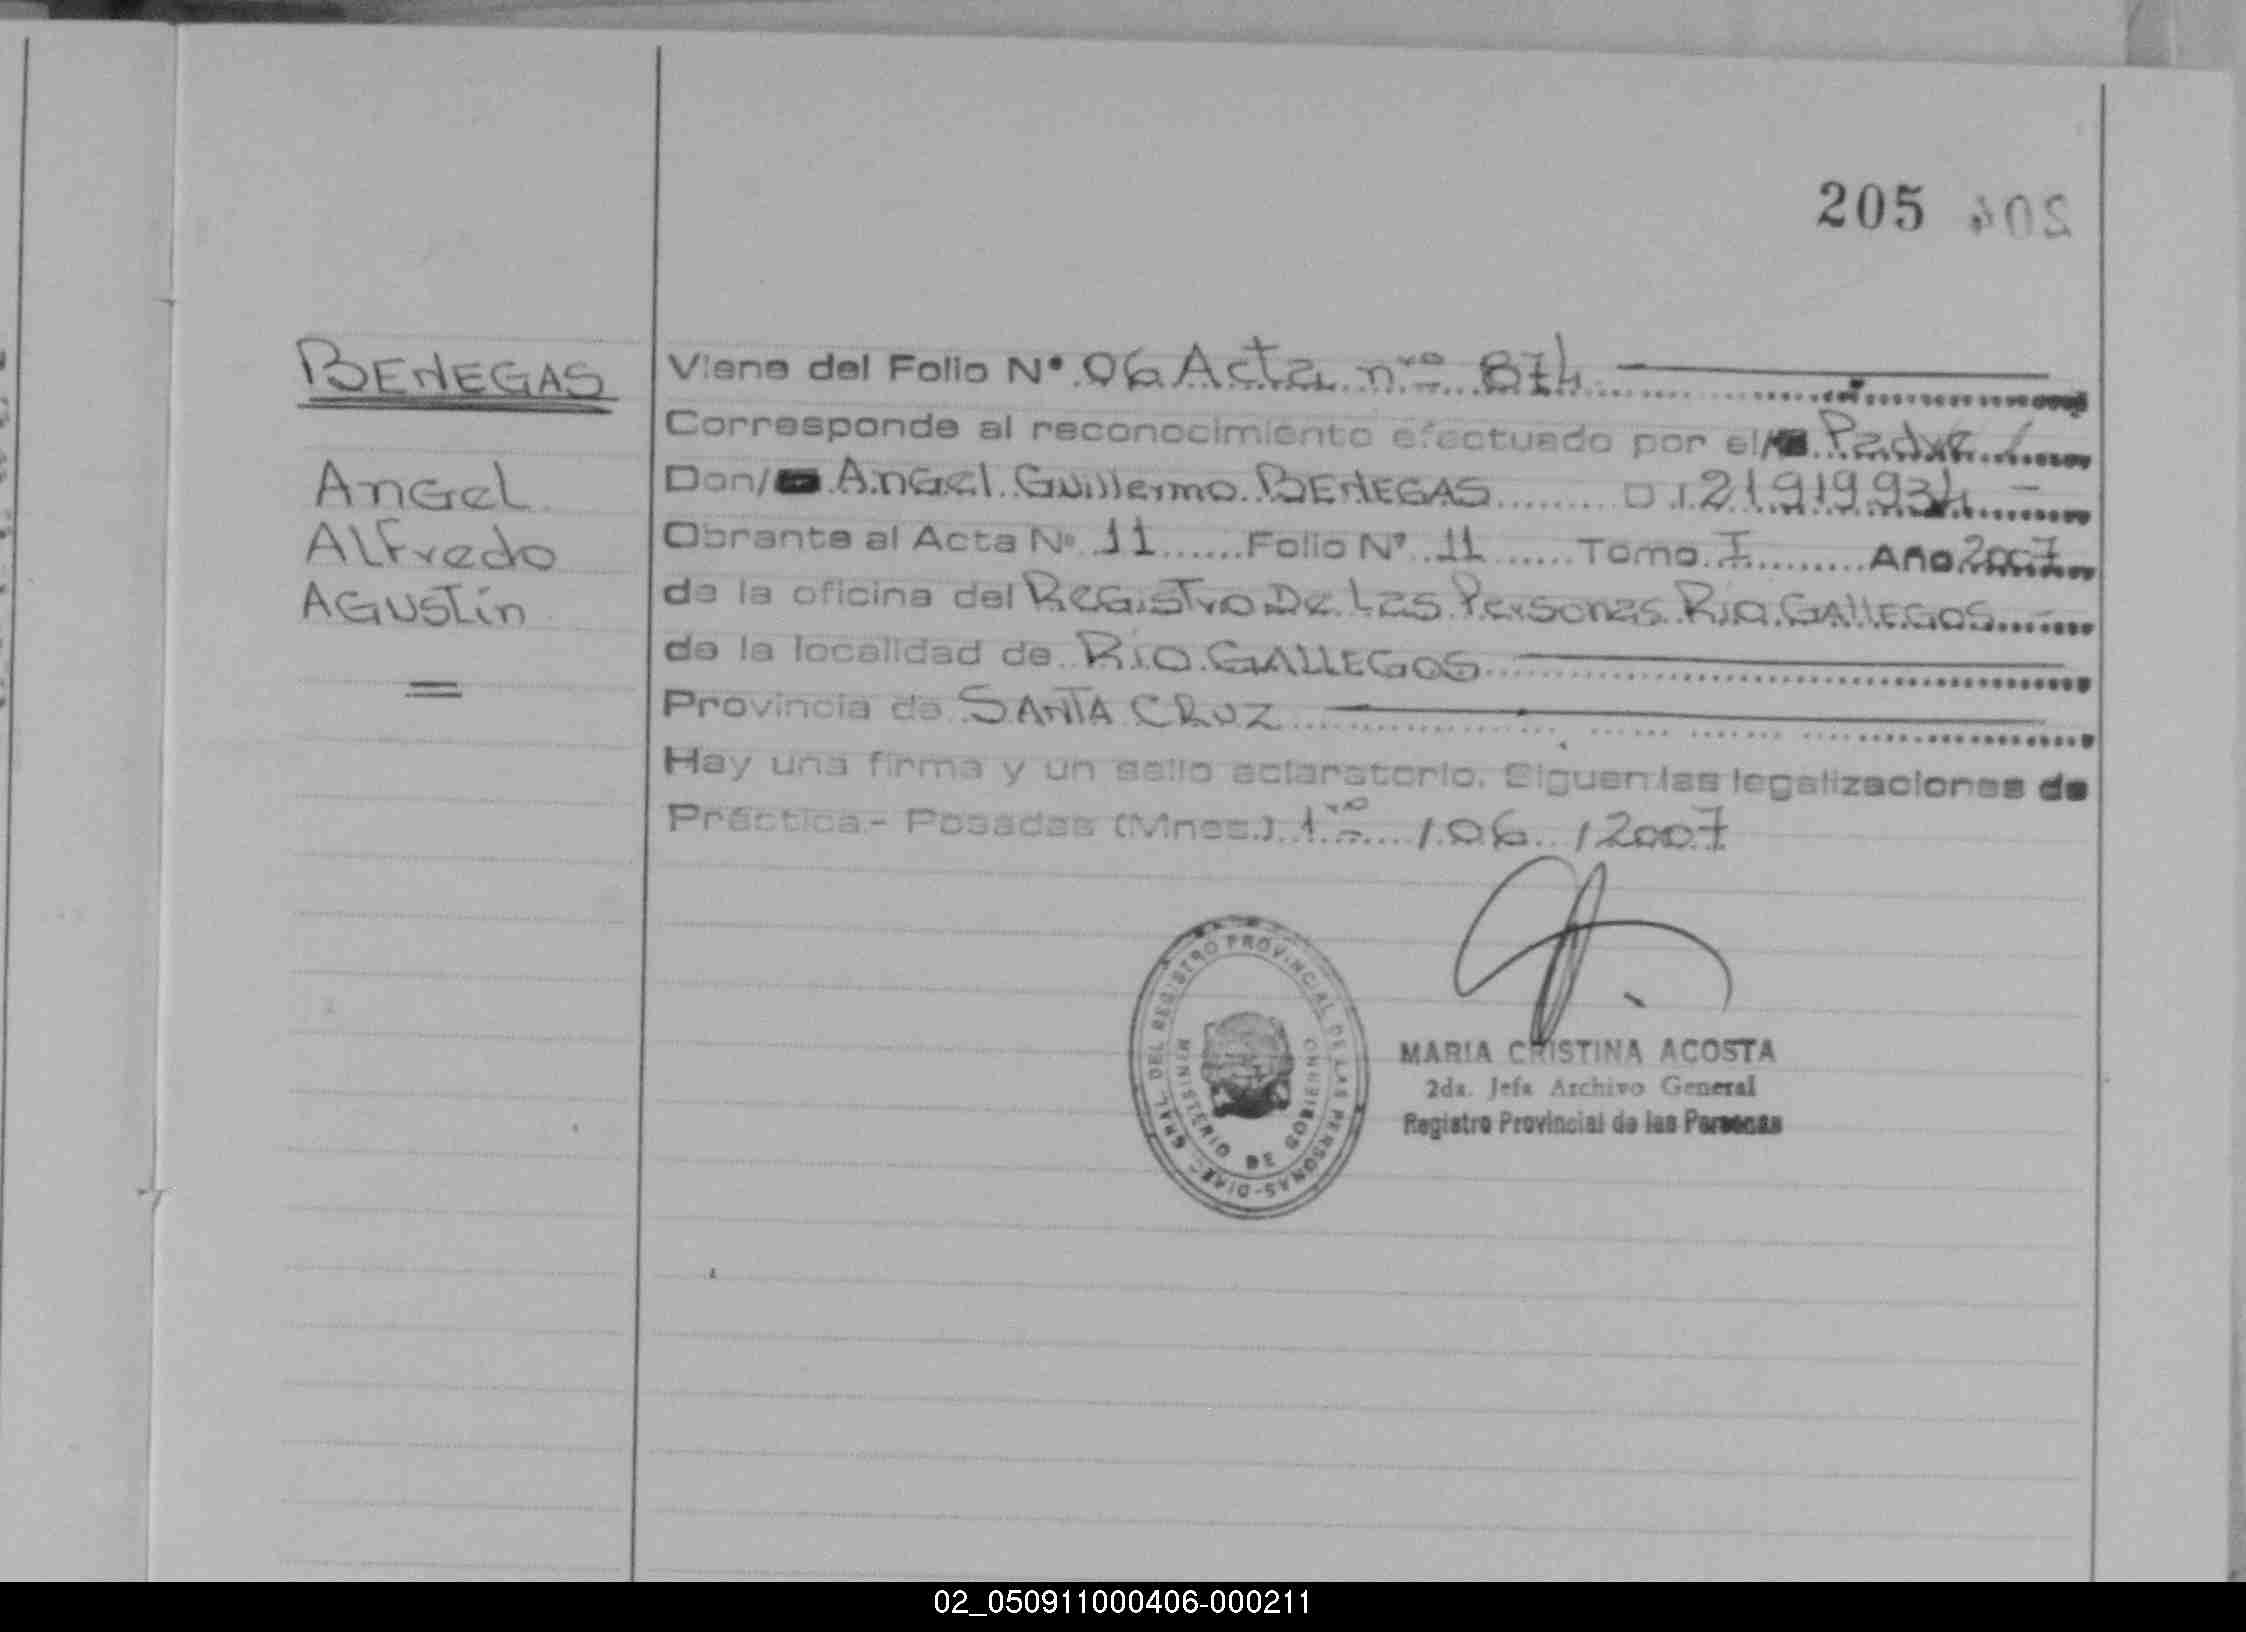 205 204
BENEGAS
Angel
Alfredo
Agustín
Viene del Folio N° 06 Acta nro 874
Corresponde al reconocimiento efectuado por el/ Padre
Don/ Angel Guillermo BENEGAS D I 21919934
Obrante al Acta N° 11 Folio N° 11 Tomo I Año 2007
de la oficina del Registro De Las Personas Río GALLEGOS
de la localidad de RÍO GALLEGOS
Provincia de SANTA CRUZ
Hay una firma y un sello aclaratorio. Siguen las legalizaciones de
Práctica.- Posadas (Mnes.) 1ro / 06 / 2007
DIREC GRAL DEL REGISTRO PROVINCIAL DE LAS PERSONAS-
MINISTERIO DE GOBIERNO
MARIA CRISTINA ACOSTA
2da. Jefa Archivo General
Registro Provincial de las Personas
02_050911000406-000211